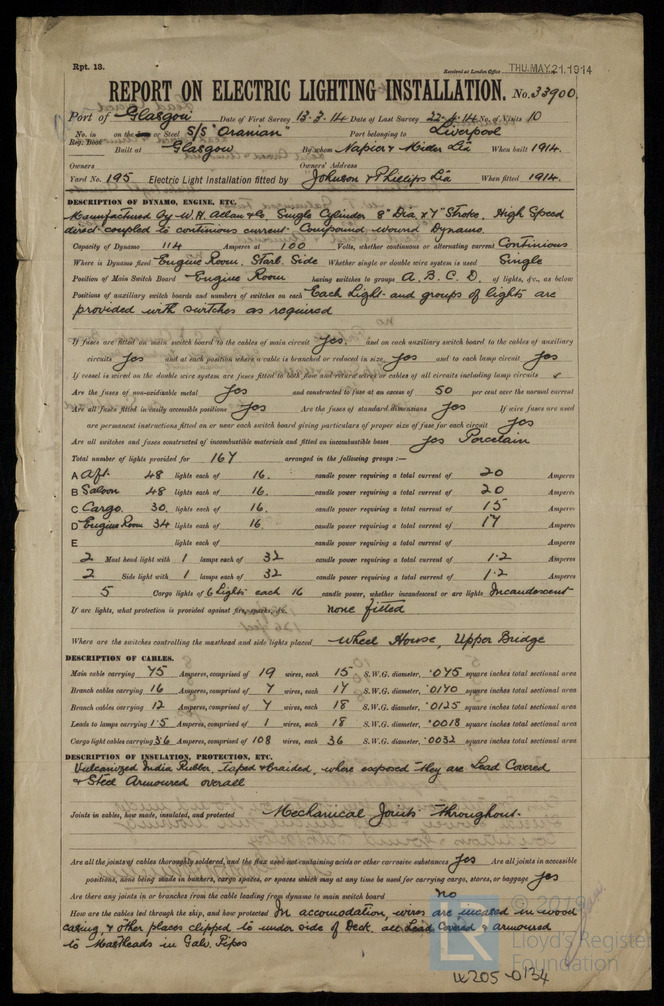 Rpt. 13.
Received at London Office THU. MAY. 21. 1914
REPORT ON ELECTRIC LIGHTING INSTALLATION. No. 33900.
Port of Glasgow Date of First Survey 13.3.14 Date of Last Survey 22.4.14 No. of Visits 10
No. in Reg. Book on the Iron or Steel S/S "Oranian" Port belonging to Liverpool
Built at Glasgow By whom Napier & Miller Ltd When built 1914.
Owners Owners' Address
Yard No. 195 Electric Light Installation fitted by Johnson & Phillips Ltd When fitted 1914.
DESCRIPTION OF DYNAMO, ENGINE, ETC.
Manufactured by W. H. Allan & Co. Single Cylinder 8" Dia. & 7" Stroke. High Speed
direct coupled to continious current. Compound wound Dynamo.
Capacity of Dynamo 114 Amperes at 100 Volts, whether continuous or alternating current Continious
Where is Dynamo fixed Engine Room. Starb. Side Whether single or double wire system is used Single
Position of Main Switch Board Engine Room having switches to groups A. B. C. D. of lights, &c., as below
Positions of auxiliary switch boards and numbers of switches on each Each Light and groups of lights are
provided with switches as required
If fuses are fitted on main switch board to the cables of main circuit yes. and on each auxiliary switch board to the cables of auxiliary
circuits yes and at each position where a cable is branched or reduced in size yes and to each lamp circuit yes
If vessel is wired on the double wire system are fuses fitted to both flow and return wires or cables of all circuits including lamp circuits
Are the fuses of non-oxidizable metal yes and constructed to fuse at an excess of 50 per cent over the normal current
Are all fuses fitted in easily accessible positions yes Are the fuses of standard dimensions yes If wire fuses are used
are permanent instructions fitted on or near each switch board giving particulars of proper size of fuse for each circuit yes
Are all switches and fuses constructed of incombustible materials and fitted on incombustible bases yes Porcelain
Total number of lights provided for 167 arranged in the following groups :—
A Aft. 48 lights each of 16. candle power requiring a total current of 20 Amperes
B Saloon 48 lights each of 16. candle power requiring a total current of 20 Amperes
C Cargo. 30. lights each of 16. candle power requiring a total current of 15 Amperes
D Engine Room 34 lights each of 16. candle power requiring a total current of 17 Amperes
E lights each of candle power requiring a total current of Amperes
2 Mast head light with 1 lamps each of 32 candle power requiring a total current of 1.2 Amperes
2 Side light with 1 lamps each of 32 candle power requiring a total current of 1.2 Amperes
5 Cargo lights of 6 Lights each 16 candle power, whether incandescent or arc lights Incandescent
If arc lights, what protection is provided against fire, sparks, &c. none fitted
Where are the switches controlling the masthead and side lights placed Wheel House, Upper Bridge
DESCRIPTION OF CABLES.
Main cable carrying 75 Amperes, comprised of 19 wires, each 15 S.W.G. diameter, .075 square inches total sectional area
Branch cables carrying 16 Amperes, comprised of 7 wires, each 17 S.W.G. diameter, .0170 square inches total sectional area
Branch cables carrying 12 Amperes, comprised of 7 wires, each 18 S.W.G. diameter, .0125 square inches total sectional area
Leads to lamps carrying 1.5 Amperes, comprised of 1 wires, each 18 S.W.G. diameter, .0018 square inches total sectional area
Cargo light cables carrying 3.6 Amperes, comprised of 108 wires, each 36 S.W.G. diameter, .0032 square inches total sectional area
DESCRIPTION OF INSULATION, PROTECTION, ETC.
Vulcanized India Rubber, taped & braided, where exposed they are Lead Covered
& Steel Armoured overall
Joints in cables, how made, insulated, and protected Mechanical Joints throughout.
Are all the joints of cables thoroughly soldered, and the flux used not containing acids or other corrosive substances yes Are all joints in accessible
positions, none being made in bunkers, cargo spaces, or spaces which may at any time be used for carrying cargo, stores, or baggage yes
Are there any joints in or branches from the cable leading from dynamo to main switch board no
How are the cables led through the ship, and how protected In accomodation, wires are incased in wood
casing, & other places clipped to under side of Deck. all Lead Covered & armoured
to MastHeads in Galv. Pipes
LR
Lloyd's Register
Foundation
LR205-0134